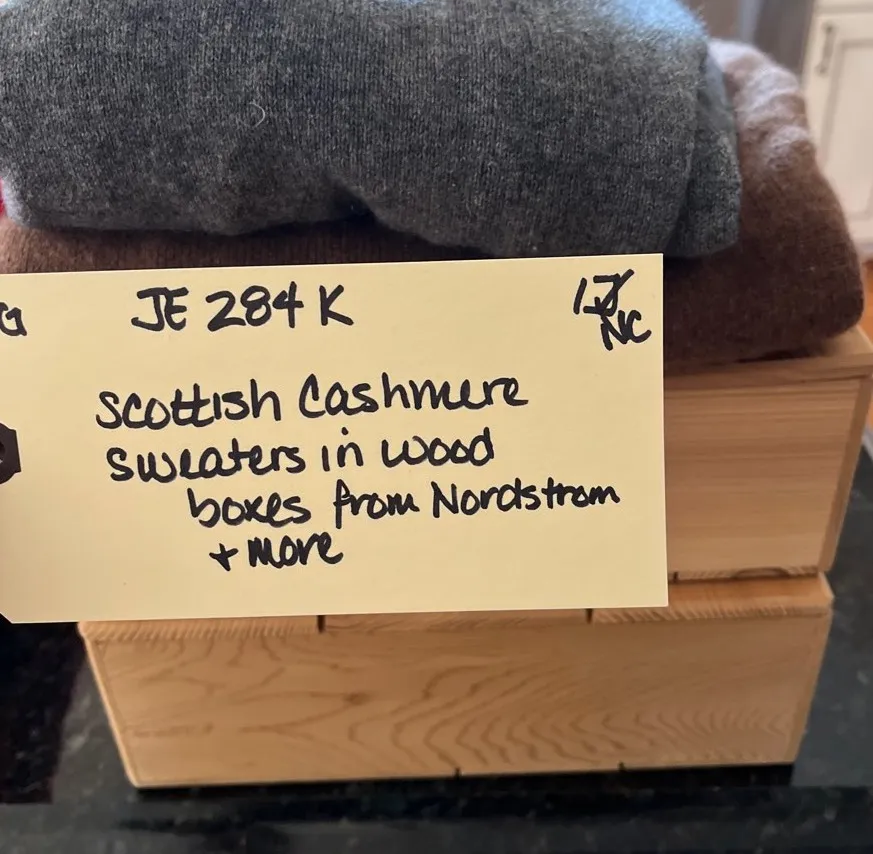 G JE 284 K
NC
Scottish Cashmere
sweaters in wood
boxes from Nordstrom
+ more